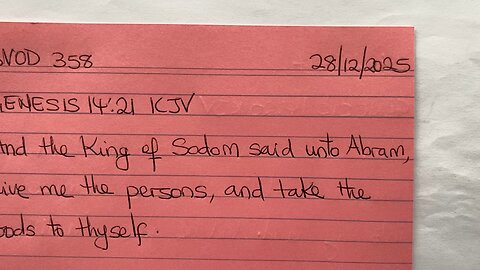 SVOD 358 28/12/2025
GENESIS 14:21 KJV
And the King of Sodom said unto Abram,
Give me the persons, and take the
goods to thyself.